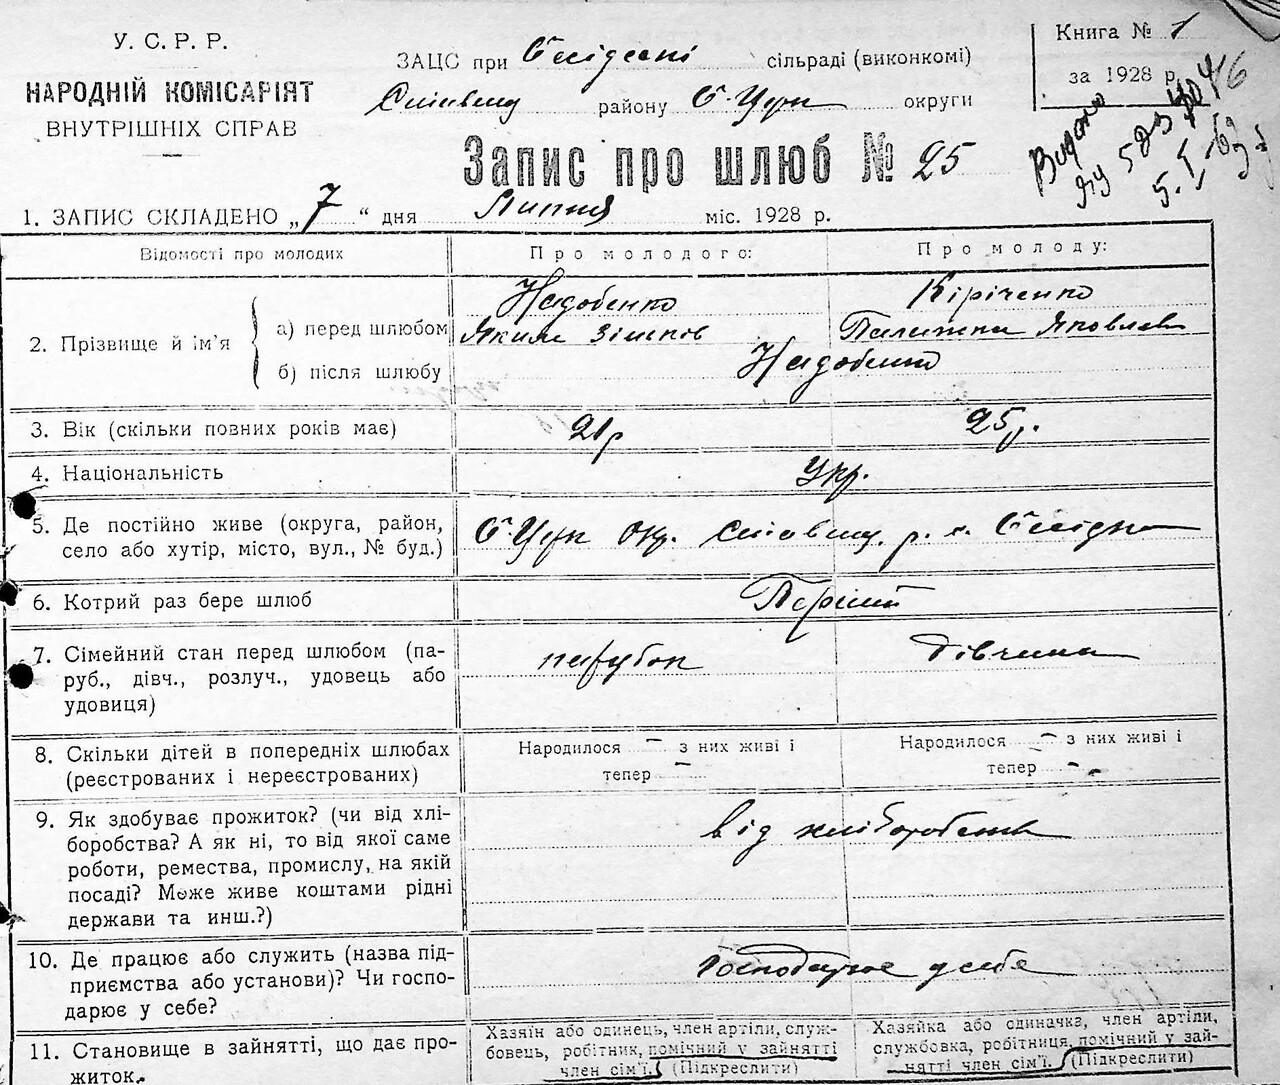 У. С. Р. Р.
НАРОДНІЙ КОМІСАРІЯТ
ВНУТРІШНІХ СПРАВ
ЗАЦС при сільраді (виконкомі)
району Б-Церк округи
Книга № 1
за 1928 р.
Видано
Запис про шлюб № 25
1. ЗАПИС СКЛАДЕНО „7“ дня Липня міс. 1928 р.
Відомості про молодих
Про молодого:
Про молоду:
2. Прізвище й ім'я
а) перед шлюбом
б) після шлюбу
Надобенко
Яким
Кіріченко
Яковлев
Надобенко
3. Вік (скільки повних років має)
21р
25р.
4. Національність
Укр.
5. Де постійно живе (округа, район,
село або хутір, місто, вул., № буд.)
Б-Церк Окр. р. с.
6. Котрий раз бере шлюб
Перший
7. Сімейний стан перед шлюбом (па-
руб., дівч., розлуч., удовець або
удовиця)
парубок
дівчина
8. Скільки дітей в попередніх шлюбах
(реєстрованих і нереєстрованих)
Народилося – з них живі і
тепер –
Народилося – з них живі і
тепер –
9. Як здобуває прожиток? (чи від хлі-
боробства? А як ні, то від якої саме
роботи, ремества, промислу, на якій
посаді? Може живе коштами рідні
держави та инш.?)
від хліборобства
10. Де працює або служить (назва під-
приємства або установи)? Чи госпо-
дарює у себе?
Господарює у себе
11. Становище в зайнятті, що дає про-
житок.
Хазяїн або одинець, член артіли, служ-
бовець, робітник, помічний у зайнятті
член сім'ї. (Підкреслити)
Хазяйка або одиначка, член артіли,
службовка, робітниця, помічний у зай-
нятті член сім'ї. (Підкреслити)